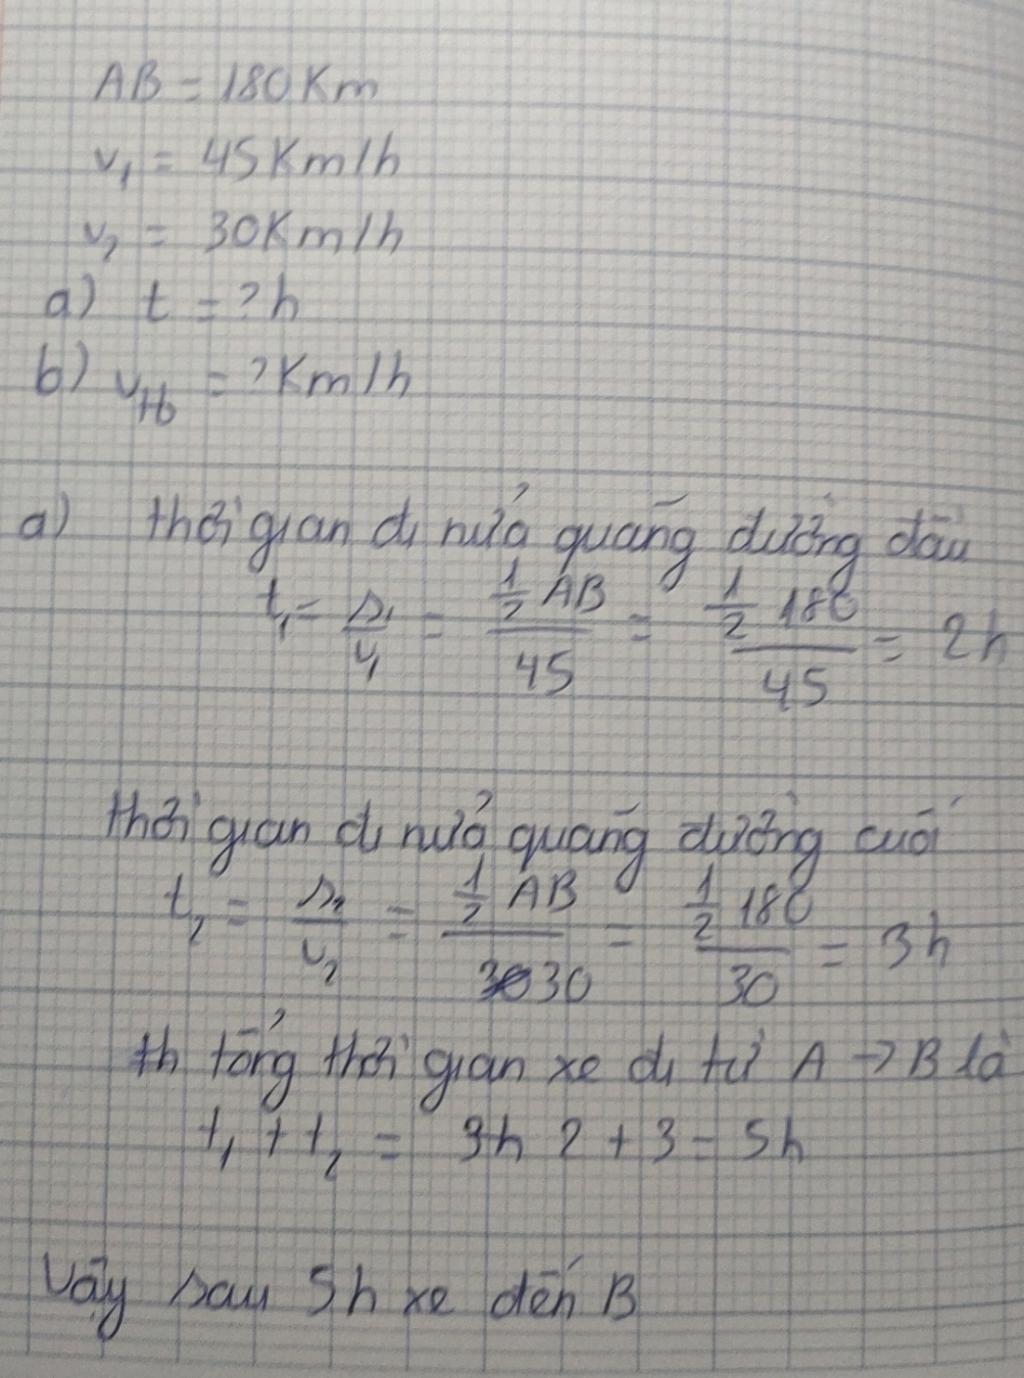 AB = 180Km
v₁ = 45Km/h
v₂ = 30Km/h
a) t = ?h
b) v_tb = ?Km/h
a) thời gian đi nửa quãng đường đầu
t₁ = s₁/v₁ = (1/2 AB)/45 = (1/2 180)/45 = 2h
thời gian đi nửa quãng đường cuối
t₂ = s₂/v₂ = (1/2 AB)/30 = (1/2 180)/30 = 3h
th tổng thời gian xe đi từ A → B là
t₁ + t₂ = 3h 2 + 3 = 5h
Vậy sau 5h xe đến B